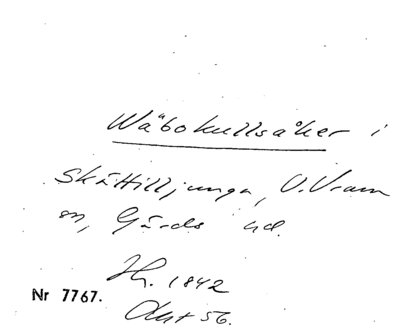 Wäbokullsåker i
Skättilljunga, V. Vram
sn, Gärds hd.
Hr. 1842
Akt 56.
Nr 7767.